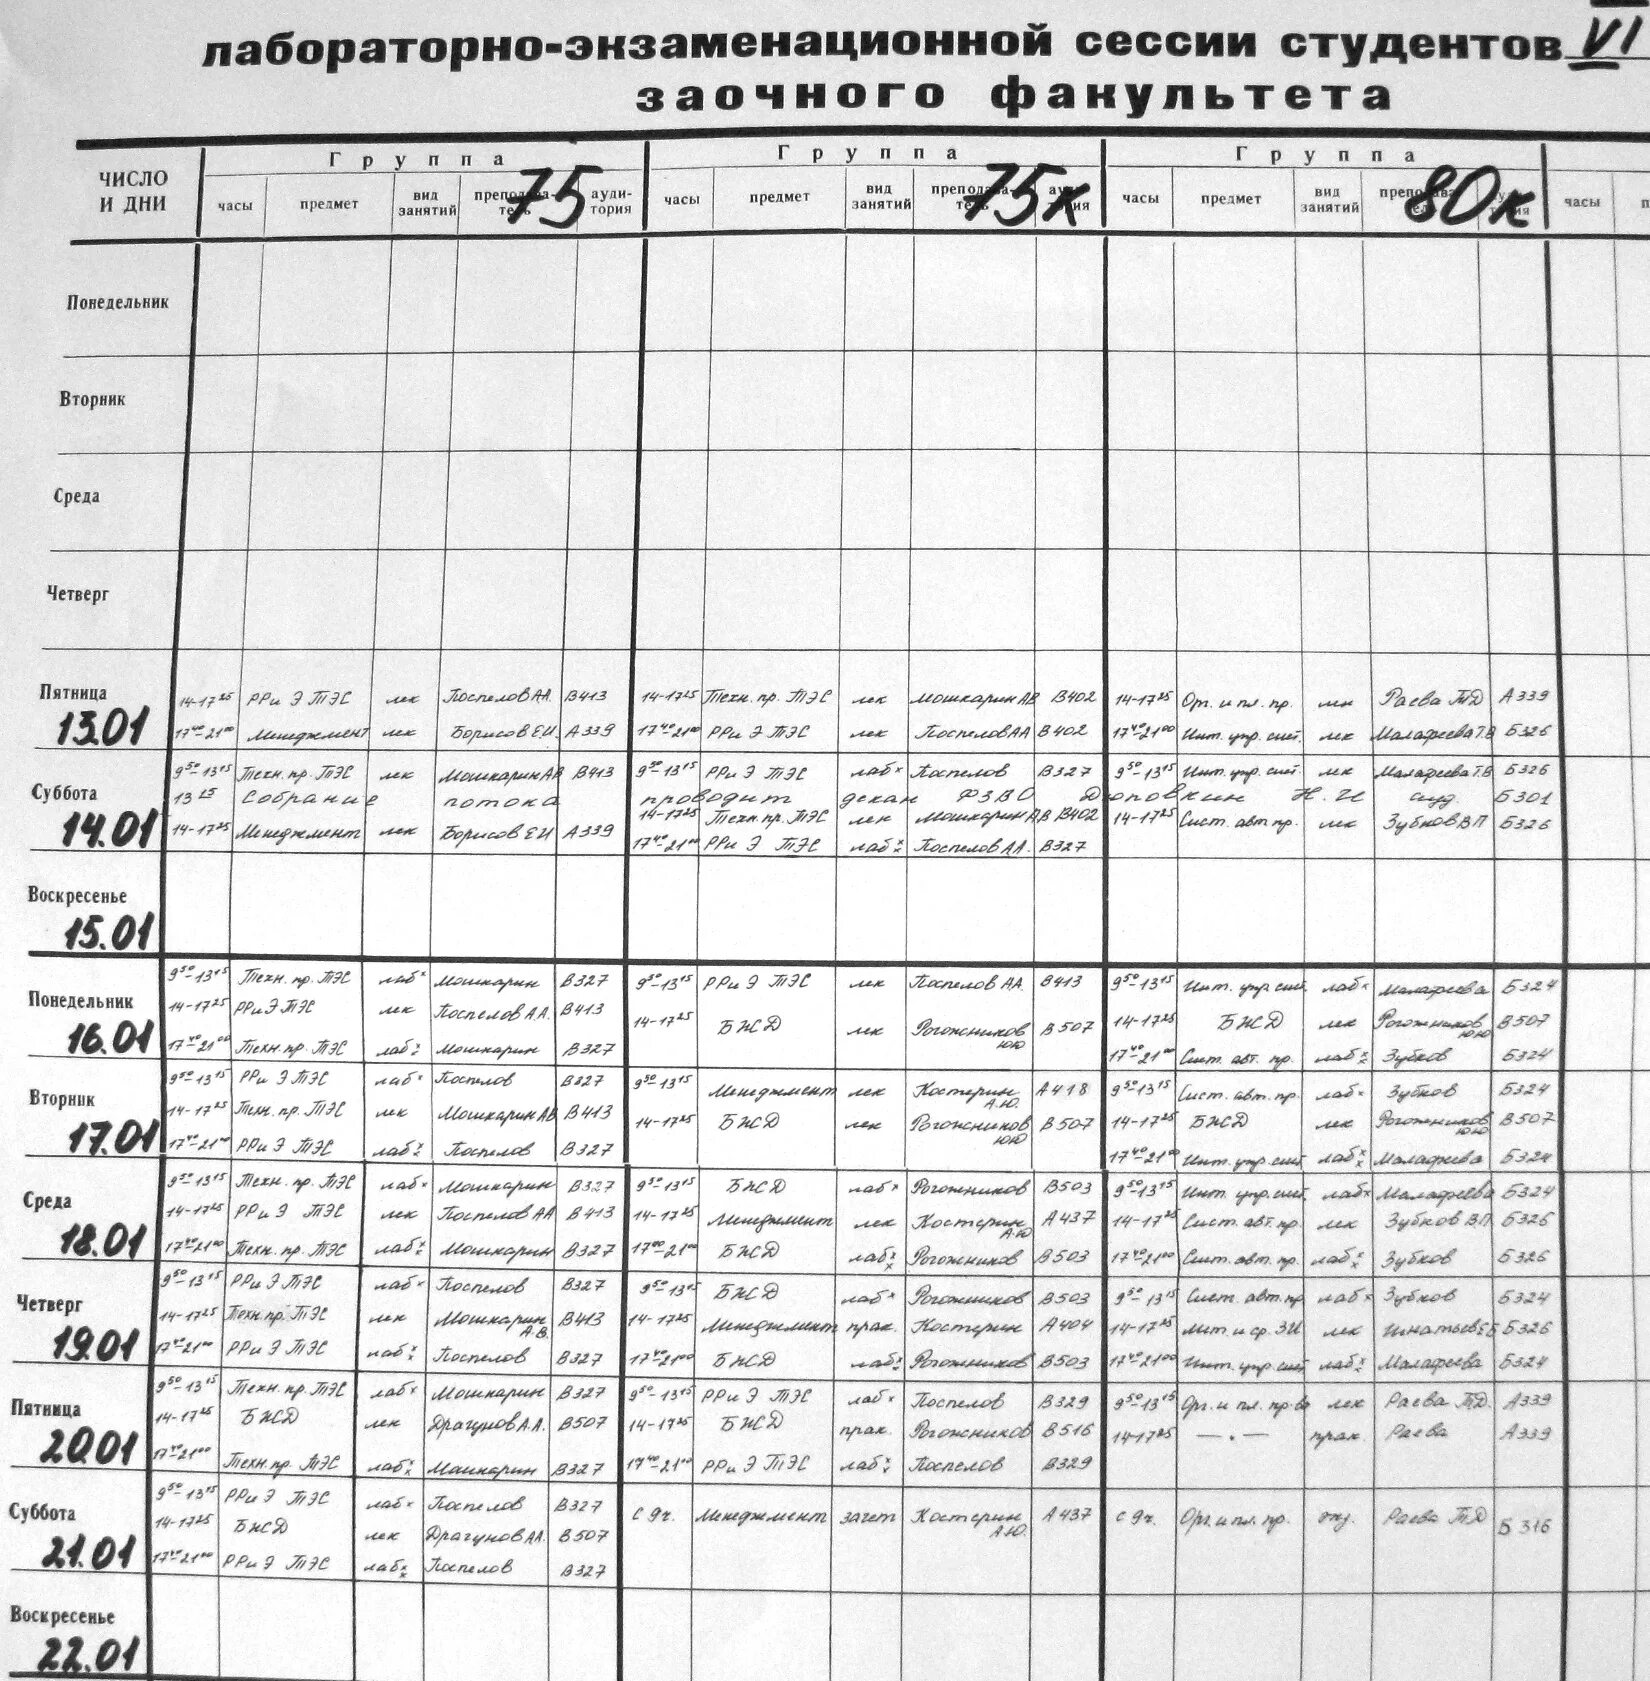 лабораторно-экзаменационной сессии студентов VI
заочного факультета
ЧИСЛО И ДНИ
Группа 75 Группа 75к Группа 80к
часы предмет вид занятий преподаватель аудитория часы предмет вид занятий преподаватель аудитория часы предмет вид занятий преподаватель аудитория часы
Понедельник
Вторник
Среда
Четверг
Пятница 13.01
14-17²⁵ РРи Э ТЭС лек Поспелов АА. В413 14-17²⁵ Техн. пр. ТЭС лек Мошкарин АВ В402 14-17²⁵ Орг. и пл. пр. лек Раева ТД А339
17⁴⁰-21⁰⁰ Менеджмент лек Борисов ЕИ А339 17⁴⁰-21⁰⁰ РРи Э ТЭС лек Поспелов АА В402 17⁴⁰-21⁰⁰ Инт. упр. сист. лек Малафеева Т.В Б326
Суббота 14.01
9⁵⁰-13¹⁵ Техн. пр. ТЭС лек Мошкарин АВ В413 9⁵⁰-13¹⁵ РРи Э ТЭС лаб× Поспелов В327 9⁵⁰-13¹⁵ Инт. упр. сист. лек Малафеева Т.В Б326
13²⁵ Собрание потока проводит декан ФЗВО Дюповкин Н.И ауд. Б301
14-17²⁵ Менеджмент лек Борисов ЕИ А339 14-17²⁵ Техн. пр. ТЭС лек Мошкарин АВ В402 14-17²⁵ Сист. авт пр. лек Зубков ВП Б326
17⁴⁰-21⁰⁰ РРи Э ТЭС лаб×× Поспелов АА. В327
Воскресенье 15.01
Понедельник 16.01
9⁵⁰-13¹⁵ Техн. пр. ТЭС лаб× Мошкарин В327 9⁵⁰-13¹⁵ РРи Э ТЭС лек Поспелов АА. В413 9⁵⁰-13¹⁵ Инт. упр. сист. лаб× Малафеева Б324
14-17²⁵ РРи Э ТЭС лек Поспелов А.А. В413 14-17²⁵ БЖД лек Рогожников ЮЮ В507 14-17²⁵ БЖД лек Рогожников ЮЮ В507
17⁴⁰-21⁰⁰ Техн. пр. ТЭС лаб×× Мошкарин В327 17⁴⁰-21⁰⁰ Сист. авт. пр. лаб×× Зубков Б324
Вторник 17.01
9⁵⁰-13¹⁵ РРи Э ТЭС лаб× Поспелов В327 9⁵⁰-13¹⁵ Менеджмент лек Костерин А.Ю. А418 9⁵⁰-13¹⁵ Сист. авт. пр. лаб× Зубков Б324
14-17²⁵ Техн. пр. ТЭС лек Мошкарин АВ В413 14-17²⁵ БЖД лек Рогожников ЮЮ В507 14-17²⁵ БЖД лек Рогожников ЮЮ В507
17⁴⁰-21⁰⁰ РРи Э ТЭС лаб×× Поспелов В327 17⁴⁰-21⁰⁰ Инт. упр. сист лаб×× Малафеева Б324
Среда 18.01
9⁵⁰-13¹⁵ Техн. пр. ТЭС лаб× Мошкарин В327 9⁵⁰-13¹⁵ БЖД лаб× Рогожников В503 9⁵⁰-13¹⁵ Инт. упр. сист. лаб× Малафеева Б324
14-17²⁵ РРи Э ТЭС лек Поспелов АА В413 14-17²⁵ Менеджмент лек Костерин АЮ А437 14-17²⁵ Сист. авт. пр. лек Зубков ВП Б326
17⁴⁰-21⁰⁰ Техн. пр. ТЭС лаб×× Мошкарин В327 17⁰⁰-21⁰⁰ БЖД лаб×× Рогожников В503 17⁴⁰-21⁰⁰ Сист. авт. пр. лаб×× Зубков Б326
Четверг 19.01
9⁵⁰-13¹⁵ РРи Э ТЭС лаб× Поспелов В327 9⁵⁰-13¹⁵ БЖД лаб× Рогожников В503 9⁵⁰-13¹⁵ Сист. авт. пр лаб× Зубков Б324
14-17²⁵ Техн. пр. ТЭС лек Мошкарин А.В. В413 14-17²⁵ Менеджмент прак. Костерин А404 14-17²⁵ Мет. и ср. ЗИ лек Игнатьев ЕБ Б326
17⁴⁰-21⁰⁰ РРи Э ТЭС лаб×× Поспелов В327 17⁴⁰-21⁰⁰ БЖД лаб×× Рогожников В503 17⁴⁰-21⁰⁰ Инт. упр. сист лаб×× Малафеева Б324
Пятница 20.01
9⁵⁰-13¹⁵ Техн. пр. ТЭС лаб× Мошкарин В327 9⁵⁰-13¹⁵ РРи Э ТЭС лаб× Поспелов В329 9⁵⁰-13¹⁵ Орг. и пл. пр-ва лек Раева ТД. А339
14-17²⁵ БЖД лек Драгунов А.А. В507 14-17²⁵ БЖД прак. Рогожников В516 14-17²⁵ — • — прак. Раева А339
17⁴⁰-21⁰⁰ Техн. пр. ТЭС лаб×× Мошкарин В327 17⁴⁰-21⁰⁰ РРи Э ТЭС лаб×× Поспелов В329
Суббота 21.01
9⁵⁰-13¹⁵ РРи Э ТЭС лаб× Поспелов В327 с 9ч. Менеджмент зачет Костерин А.Ю. А437 с 9ч. Орг. и пл. пр. Раева ТД Б316
14-17²⁵ БЖД лек Драгунов АА. В507
17⁴⁰-21⁰⁰ РРи Э ТЭС лаб×× Поспелов В327
Воскресенье 22.01